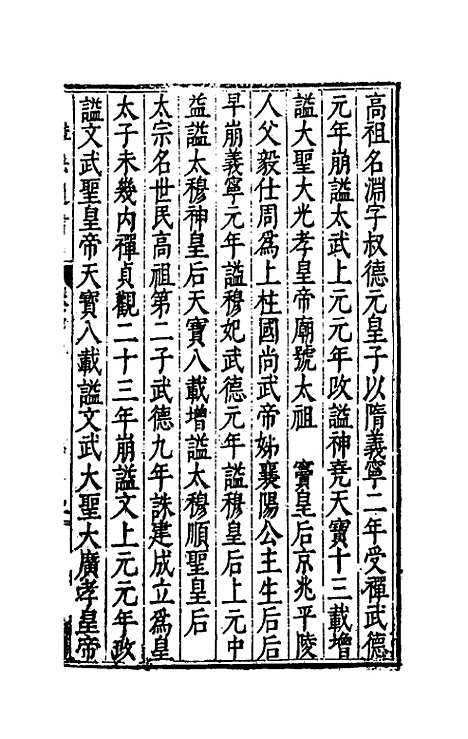 高祖名淵字叔德元皇子以隋義寧二年受禪武德
元年崩謚太武上元元年改謚神堯天寶十三載增
謚大聖大光孝皇帝廟號太祖　竇皇后京兆平陵
人父毅仕周爲上柱國尚武帝姊襄陽公主生后后
早崩義寧元年謚穆妃武德元年謚穆皇后上元中
益謚太穆神皇后天寶八載增謚太穆順聖皇后
太宗名世民高祖第二子武德九年誅建成立爲皇
太子未幾内禪貞觀二十三年崩謚文上元元年改
謚文武聖皇帝天寶八載謚文武大聖大廣孝皇帝